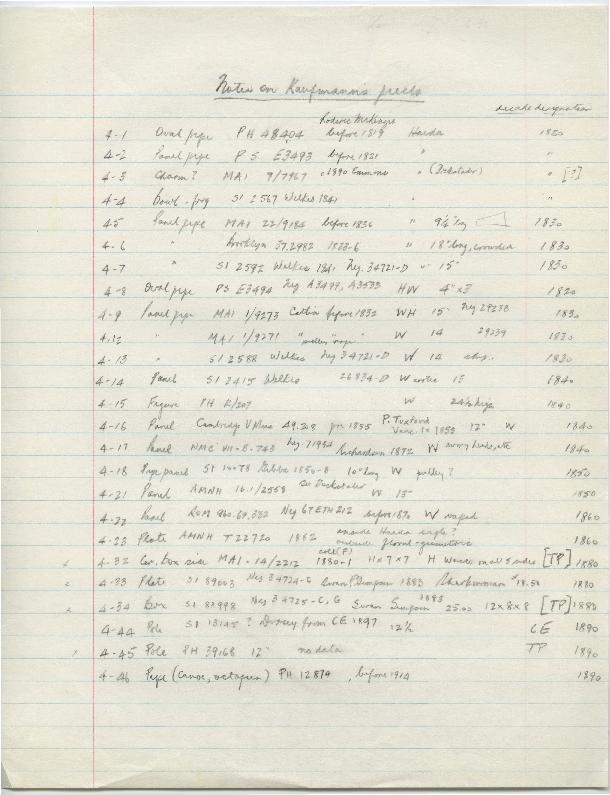 Notes on Kaufmann's pieces
decade designation
4-1 Oval pipe PH 48404 Roderic McKenzie before 1819 Haida 1820
4-2 Panel pipe PS E3493 before 1821 " "
4-3 Charm? MAI 9/7967 c1890 Emmons " " [?]
4-4 Bowl-frog SI 2567 Wilkes 1841 " "
4-5 Panel pipe MAI 22/9184 before 1836 " 9¼" long 1830
4-6 " Brooklyn 37.2982 " 18" long, crowded 1830
4-7 " SI 2592 Wilkes 1841 Neg. 34721-D " 15" 1830
4-8 Oval pipe PS E3494 Neg A3499, A3533 HW 4" x 3" 1820
4-9 Panel pipe MAI 1/9273 Catlin before 1832 WH 15" Neg 29238 1830
4-12 " MAI 1/9271 "pulley" "rope" W 14 29239 1830
4-13 " SI 2588 Wilkes Neg 34721-D W 14 ship. 1830
4-14 Panel SI 2415 Wilkes 26834-D W 15 1840
4-15 Figure PH W high 1840
4-16 Panel Cambridge V Mus 49.208 pre 1855 P. Tuxford Vanc. Is 1855 12" W 1840
4-17 Panel NMC VII-B-743 Neg. Richardson 1872 W ivory heads, etc 1840
4-18 Pipe panel SI Gibbs 10" long W pulley? 1850
4-21 Panel AMNH 16.1/2558 see W 15" 1850
4-22 Panel ROM 960.69.332 Neg 67ETH212 before 1870 W 1860
4-23 Plate AMNH T22720 1882 inside Haida eagle? outside floral + geometric 1860
4-32 box MAI - 14/2212 coll(?) 1880-1 11x7x7 H 5 sides [TP] 1880
4-33 Plate SI 89003 Neg 34724-C Swan 1883 Skackwoman $18.50 1880
4-34 Box SI 88998 Neg 34725-C, G Swan Simpson 1883 25.00 12x8x8 [TP] 1880
4-44 Pole SI ? Dorsey from CE 1897 12½ CE 1890
4-45 Pole PH 39168 12" no data TP 1890
4-46 Pipe (canoe, octopus) PH 12874, before 1914 1890